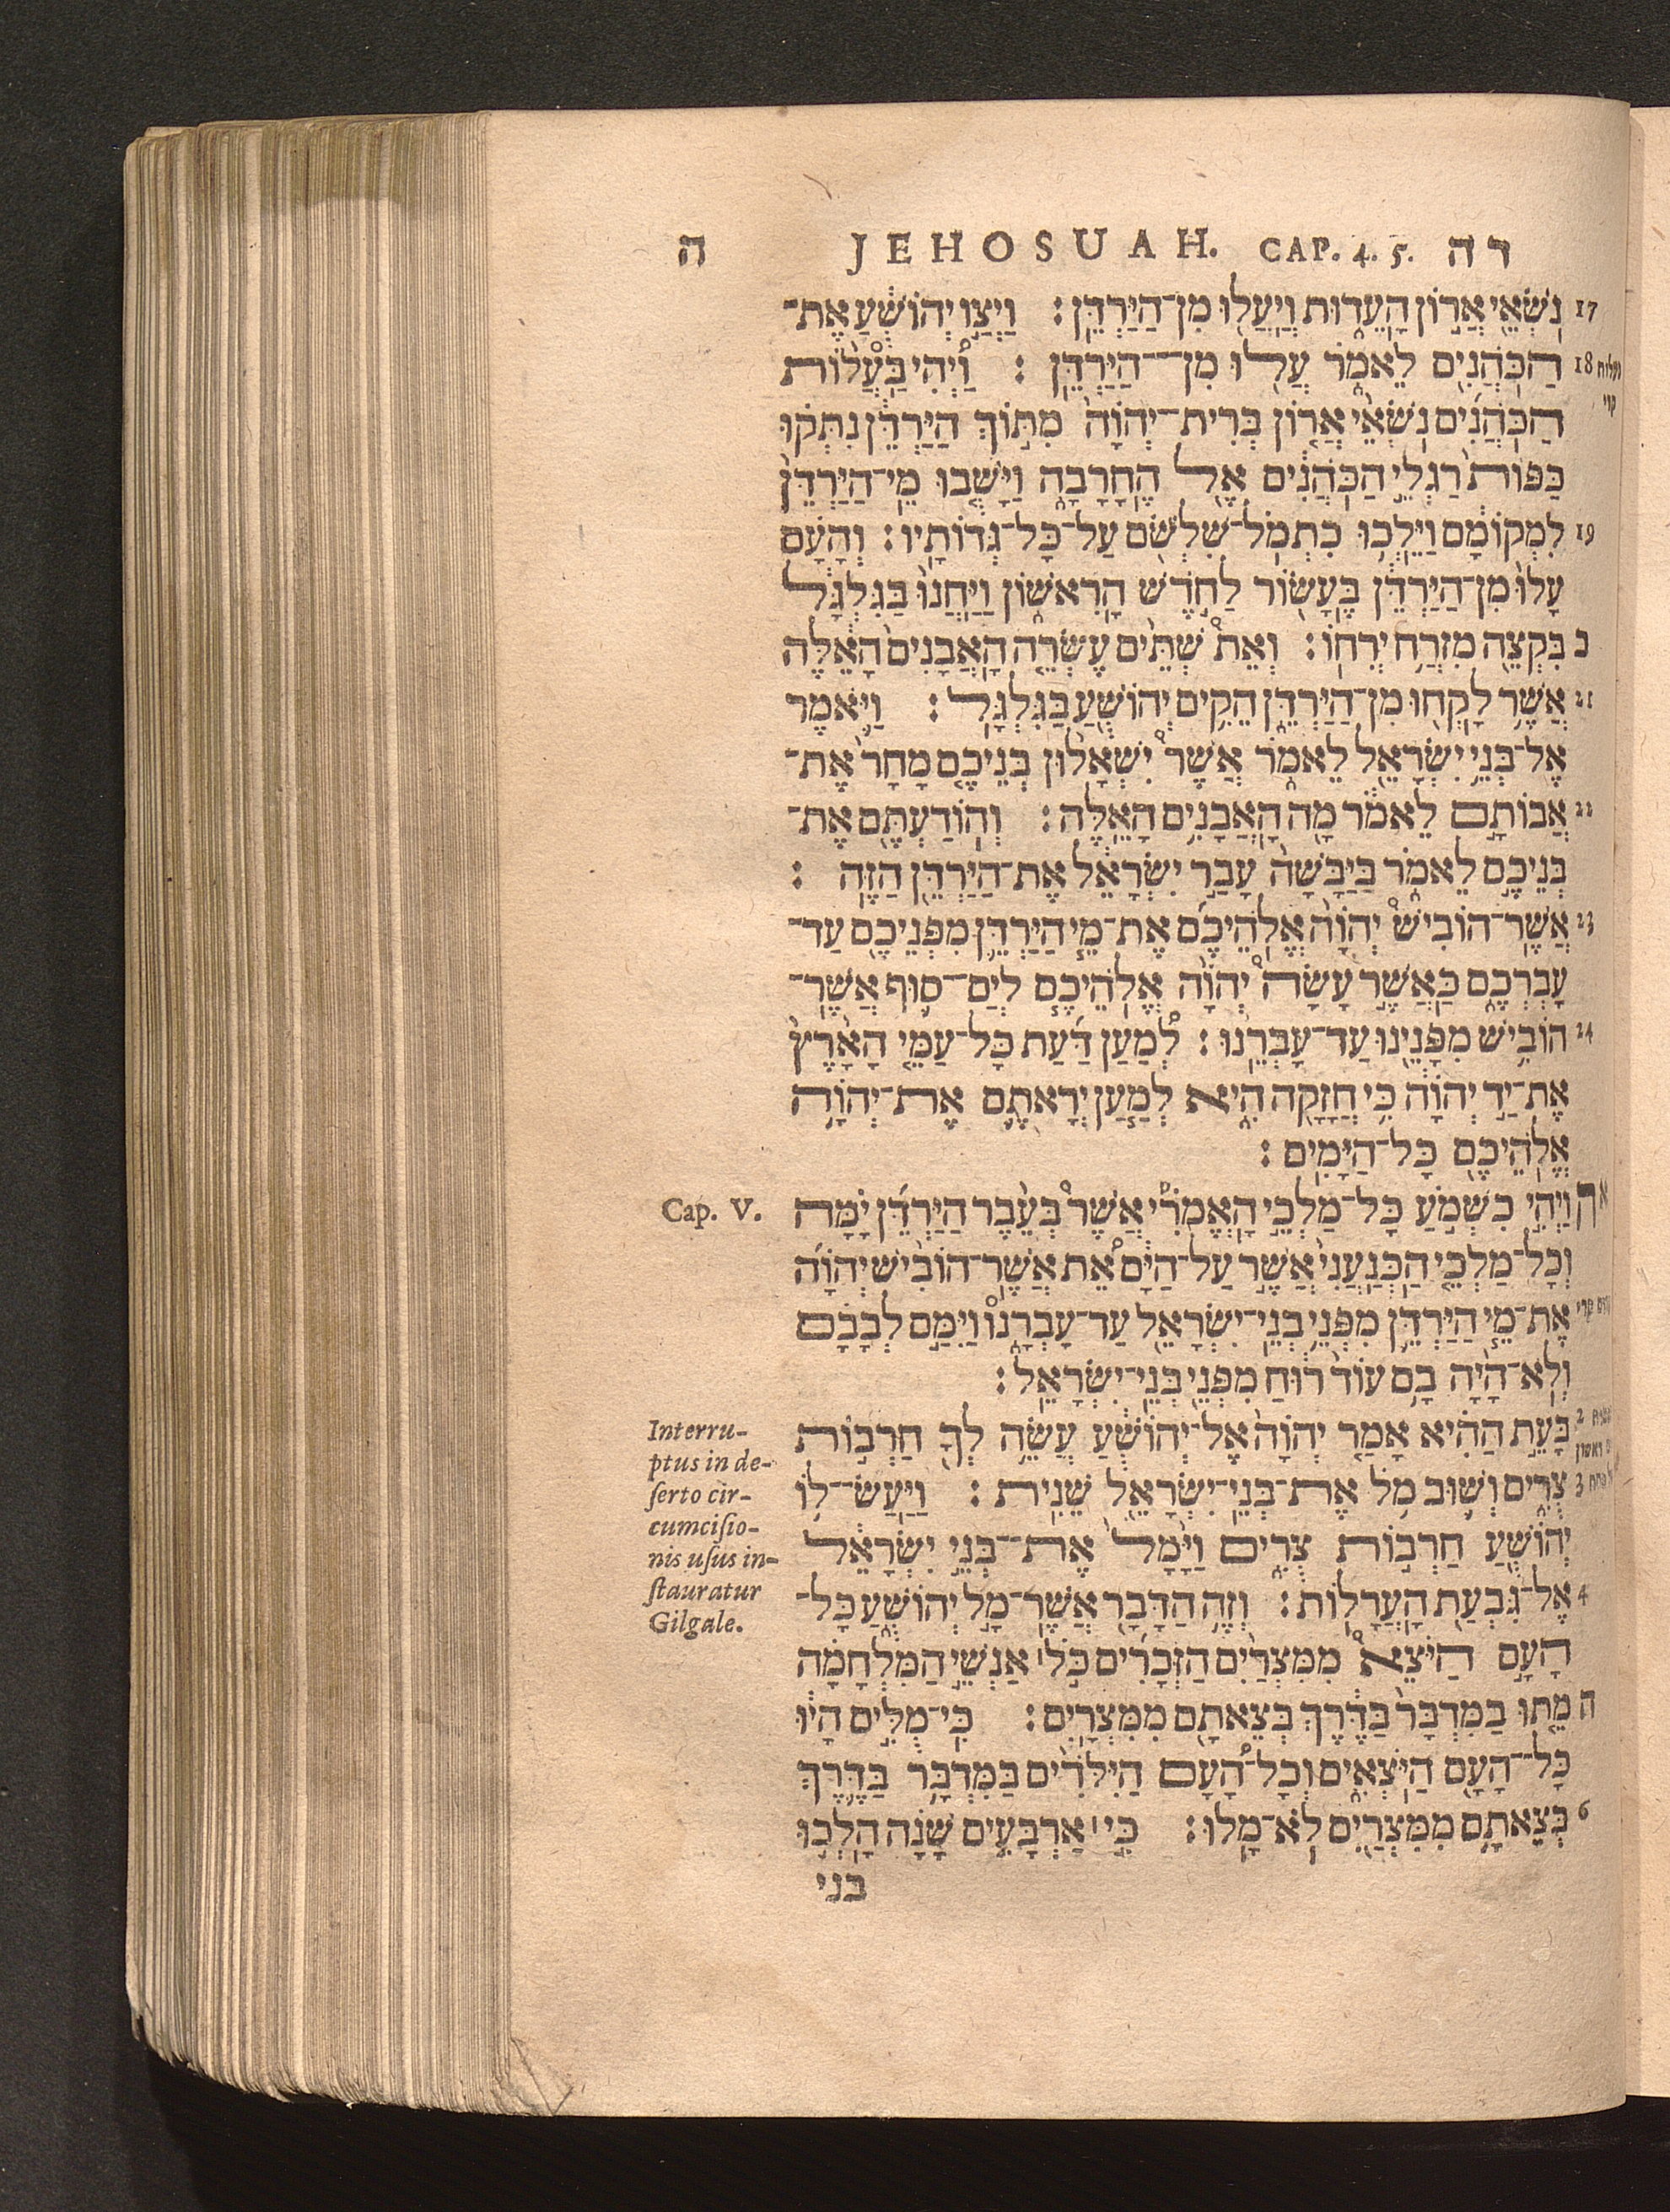 ה JEHOSUAH. CAP. 4. 5. ד ה
נֹשְׂאֵי אֲרוֹן הָעֵדוּת וְיַעֲלוּ מִן־הַיַּרְדֵּן׃ וַיְצַו יְהוֹשֻׁעַ אֶת־ 17
הַכֹּהֲנִים לֵאמֹר עֲלוּ מִן־הַיַּרְדֵּן׃ וַיְהִי בַּעֲלוֹת 18
הַכֹּהֲנִים נֹשְׂאֵי אֲרוֹן בְּרִית־יְהוָֹה מִתּוֹךְ הַיַּרְדֵּן נִתְּקוּ
כַּפּוֹת רַגְלֵי הַכֹּהֲנִים אֶל הֶחָרָבָה וַיָּשֻׁבוּ מֵי־הַיַּרְדֵּן
לִמְקוֹמָם וַיֵּלְכוּ כִתְמֹל־שִׁלְשֹׁם עַל־כָּל־גְּדוֹתָיו׃ וְהָעָם 19
עָלוּ מִן־הַיַּרְדֵּן בֶּעָשׂוֹר לַחֹדֶשׁ הָרִאשׁוֹן וַיַּחֲנוּ בַּגִּלְגָּל
בִּקְצֵה מִזְרַח יְרִחוֹ׃ וְאֵת שְׁתֵּים עֶשְׂרֵה הָאֲבָנִים הָאֵלֶּה כ
אֲשֶׁר לָקְחוּ מִן־הַיַּרְדֵּן הֵקִים יְהוֹשֻׁעַ בַּגִּלְגָּל׃ וַיֹּאמֶר 21
אֶל־בְּנֵי יִשְׂרָאֵל לֵאמֹר אֲשֶׁר יִשְׁאָלוּן בְּנֵיכֶם מָחָר אֶת־
אֲבוֹתָם לֵאמֹר מָה הָאֲבָנִים הָאֵלֶּה׃ וְהוֹדַעְתֶּם אֶת־ 22
בְּנֵיכֶם לֵאמֹר בַּיַּבָּשָׁה עָבַר יִשְׂרָאֵל אֶת־הַיַּרְדֵּן הַזֶּה׃
אֲשֶׁר־הוֹבִישׁ יְהוָֹה אֱלֹהֵיכֶם אֶת־מֵי הַיַּרְדֵּן מִפְּנֵיכֶם עַד־ 23
עָבְרְכֶם כַּאֲשֶׁר עָשָׂה יְהוָֹה אֱלֹהֵיכֶם לְיַם־סוּף אֲשֶׁר־
הוֹבִישׁ מִפָּנֵינוּ עַד־עָבְרֵנוּ׃ לְמַעַן דַּעַת כָּל־עַמֵּי הָאָרֶץ 24
אֶת־יַד יְהוָֹה כִּי חֲזָקָה הִיא לְמַעַן יְרָאתֶם אֶת־יְהוָֹה
אֱלֹהֵיכֶם כָּל־הַיָּמִים׃
Cap. V. וַיְהִי כִשְׁמֹעַ כָּל־מַלְכֵי הָאֱמֹרִי אֲשֶׁר בְּעֵבֶר הַיַּרְדֵּן יָמָּה א
וְכָל־מַלְכֵי הַכְּנַעֲנִי אֲשֶׁר עַל־הַיָּם אֵת אֲשֶׁר־הוֹבִישׁ יְהוָֹה
אֶת־מֵי הַיַּרְדֵּן מִפְּנֵי בְנֵי־יִשְׂרָאֵל עַד־עָבְרָנוּ וַיִּמַּס לְבָבָם
וְלֹא־הָיָה בָם עוֹד רוּחַ מִפְּנֵי בְּנֵי־יִשְׂרָאֵל׃
בָּעֵת הַהִיא אָמַר יְהוָֹה אֶל־יְהוֹשֻׁעַ עֲשֵׂה לְךָ חַרְבוֹת 2
צֻרִים וְשׁוּב מֹל אֶת־בְּנֵי־יִשְׂרָאֵל שֵׁנִית׃ וַיַּעַשׂ־לוֹ 3
יְהוֹשֻׁעַ חַרְבוֹת צֻרִים וַיָּמָל אֶת־בְּנֵי יִשְׂרָאֵל
אֶל־גִּבְעַת הָעֲרָלוֹת׃ וְזֶה הַדָּבָר אֲשֶׁר־מָל יְהוֹשֻׁעַ כָּל־ 4
הָעָם הַיֹּצֵא מִמִּצְרַיִם הַזְּכָרִים כֹּל׀ אַנְשֵׁי הַמִּלְחָמָה
מֵתוּ בַמִּדְבָּר בַּדֶּרֶךְ בְּצֵאתָם מִמִּצְרָיִם׃ כִּי־מֻלִים הָיוּ ה
כָּל־הָעָם הַיֹּצְאִים וְכָל־הָעָם הַיִּלֹּדִים בַּמִּדְבָּר בַּדֶּרֶךְ
בְּצֵאתָם מִמִּצְרַיִם לֹא־מָלוּ׃ כִּי׀ אַרְבָּעִים שָׁנָה הָלְכוּ 6
בני
Interru-
ptus in de-
ſerto cir-
cumciſio-
nis uſus in-
ſtauratur
Gilgale.